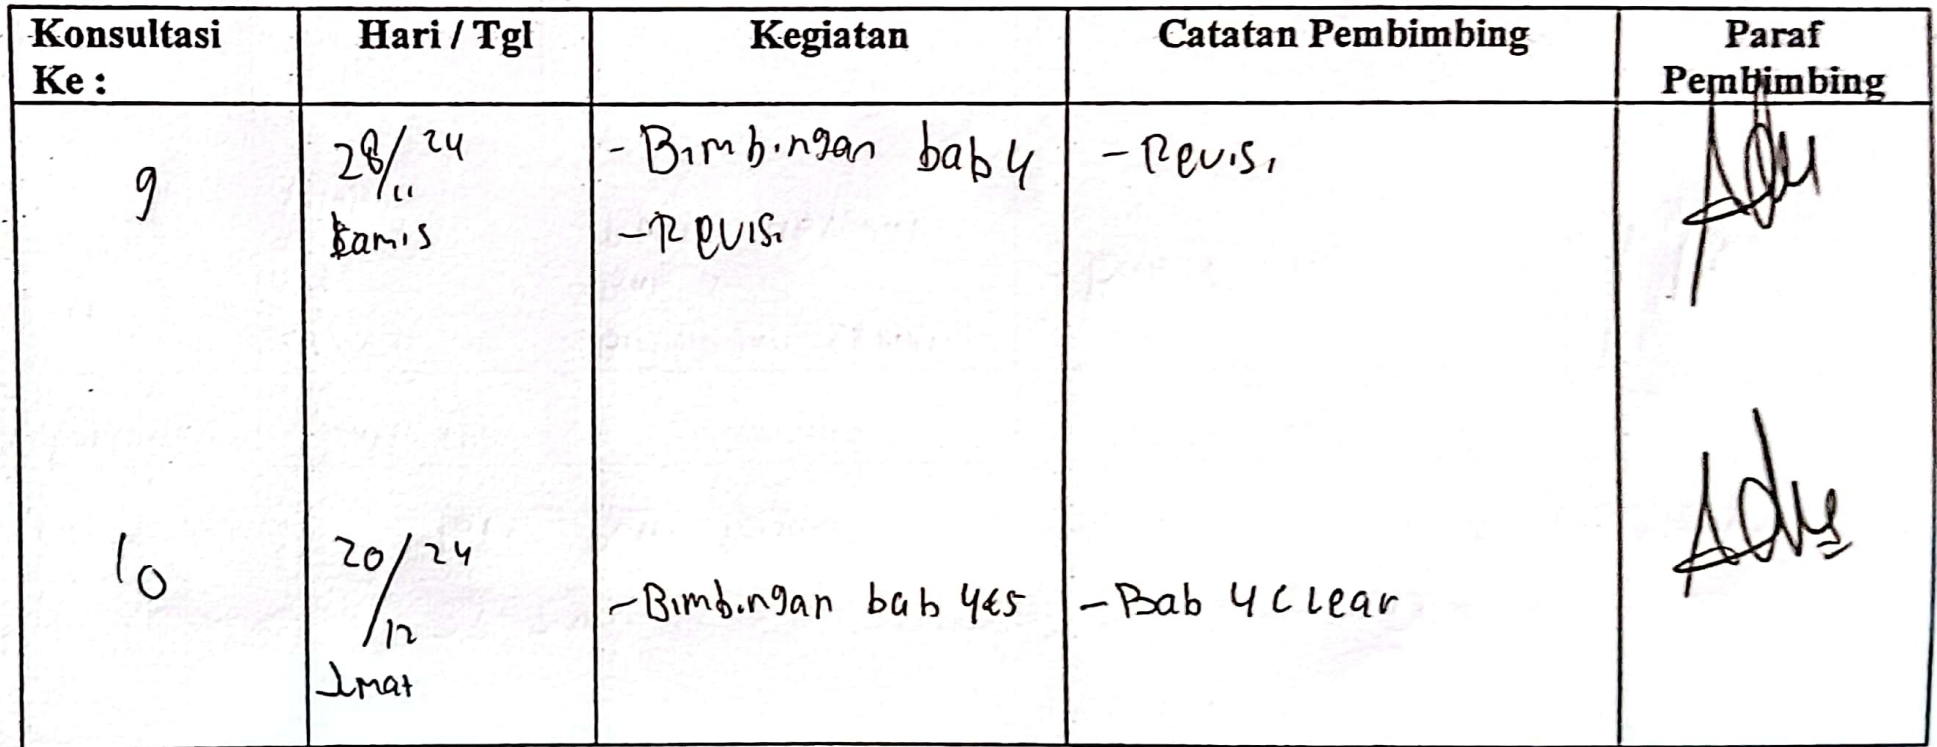 Konsultasi Ke : Hari / Tgl Kegiatan Catatan Pembimbing Paraf Pembimbing
9 28/11 24 - Bimbingan bab 4 - Revisi
Kamis - Revisi
10 20/12 24 - Bimbingan bab 4&5 - Bab 4 Clear
Jmat